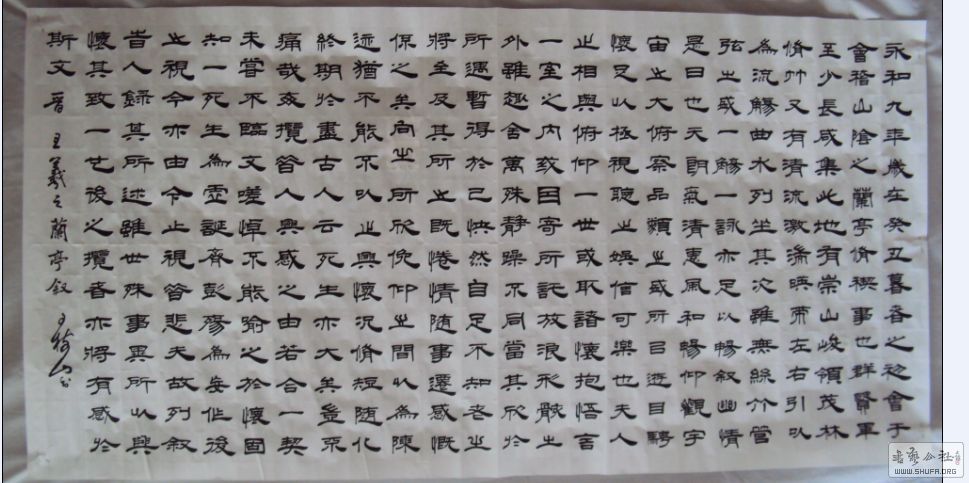 永和九年歲在癸丑暮春之初會于
會稽山陰之蘭亭脩禊事也群賢畢
至少長咸集此地有崇山峻領茂林
脩竹又有清流激湍暎帶左右引以
為流觴曲水列坐其次雖無絲竹管
弦之盛一觴一詠亦足以暢叙幽情
是日也天朗氣清惠風和暢仰觀宇
宙之大俯察品類之盛所以遊目騁
懷足以極視聽之娛信可樂也夫人
之相與俯仰一世或取諸懷抱悟言
一室之內或因寄所託放浪形骸之
外雖趣舍萬殊靜躁不同當其欣於
所遇暫得於己怏然自足不知老之
將至及其所之既惓情隨事遷感慨
係之矣向之所欣俛仰之間以為陳
迹猶不能不以之興懷況脩短隨化
終期於盡古人云死生亦大矣豈不
痛哉每攬昔人興感之由若合一契
未嘗不臨文嗟悼不能喻之於懷固
知一死生為虛誕齊彭殤為妄作後
之視今亦由今之視昔悲夫故列叙
旹人錄其所述雖世殊事異所以興
懷其致一也後之攬者亦將有感於
斯文 晉王羲之蘭亭叙
书艺公社
WWW.SHUFA.ORG